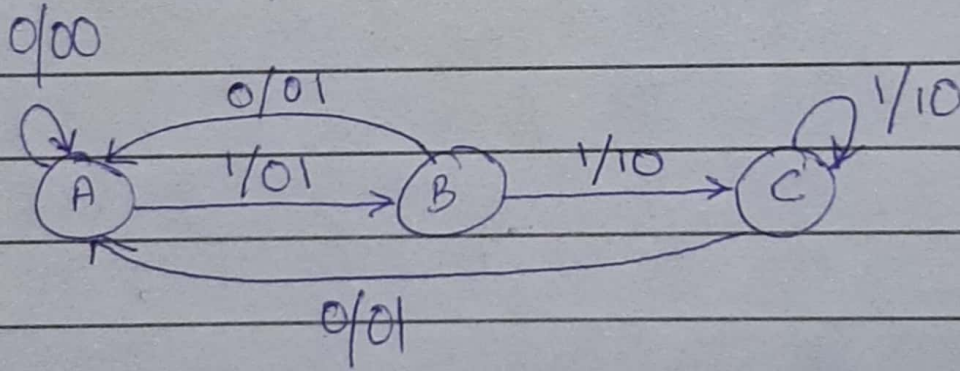 0/00
0/01
1/10
1/01
1/10
A
B
C
0/01